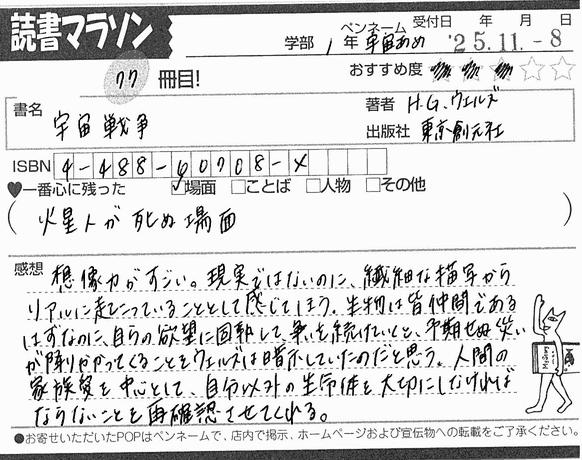 読書マラソン
学部 1年 ペンネーム 宇宙あめ 受付日 年 月 日
'25.11.-8
77冊目!
おすすめ度 ☆☆
書名 宇宙戦争
著者 H.G.ウェルズ
出版社 東京創元社
ISBN 4-488-60708-X
♥一番心に残った ☑場面 □ことば □人物 □その他
(火星人が死ぬ場面)
感想 想像力がすごい。現実ではないのに、繊細な描写から
リアルに起こっていることとして感じてしまう。生物は皆仲間である
はずなのに、自らの欲望に固執して、争いを続けたいと、予期せぬ災い
が降りかかってくることをウェルズは暗示していたのだと思う。人間の
家族愛を中心として、自分以外の生命体を大切にしなければ
ならないことを再確認させてくれる。
●お寄せいただいたPOPはペンネームで、店内で掲示、ホームページおよび宣伝物への転載をご了承ください。